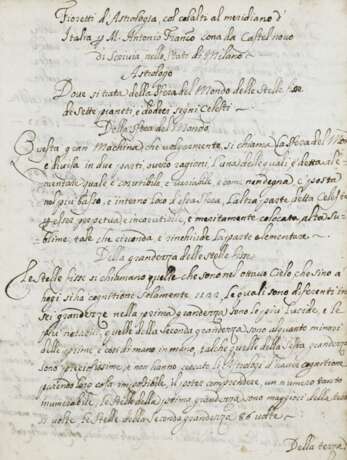 Fioretti d'Astrologia, col calcolati al meridiano d'
Italia, p M. Antonio Franco cona da Castel novo
di Scrivia nello stato di Milano
Astrologo
Dove si tratta della Sfera del Mondo delle Stelle fisse
de sette pianeti e dodeci segni Celesti
Della Sfera del Mondo
Questa gran Machina che volgarmente si chiama la Sfera del Mondo
è divisa in due parti, una delle quali è detta ele
mentale quale è corutibile, e variabile, e posta
nel più basso, e intorno
e per esser perpetua e incorutibile, e meritamente colocata alta su
blime tale che circonda e rinchiude la parte elementare
Della grandezza delle stelle fisse
Le stelle fisse si chiamano quelle che sono nel ottavo Cielo che sino a
hogi si ha cognitione solamente 1022. Le quali sono diferenti in
sei grandezze nella prima grandezza sono le più lucide, e le
più notabili quelle della seconda grandezza sono alquanto minori
delle prime e cosi di mano in mano, talche quelle della sesta grandezza
sono piccolissime, e non hanno cercato li Astrologi d'havere cognitione
parendo loro cosa impossibile il poter comprendere un numero quasi
inumerabile, le stelle della prima grandezza sono maggiori della terra
volte le stelle della seconda grandezza 86 volte
Della terza